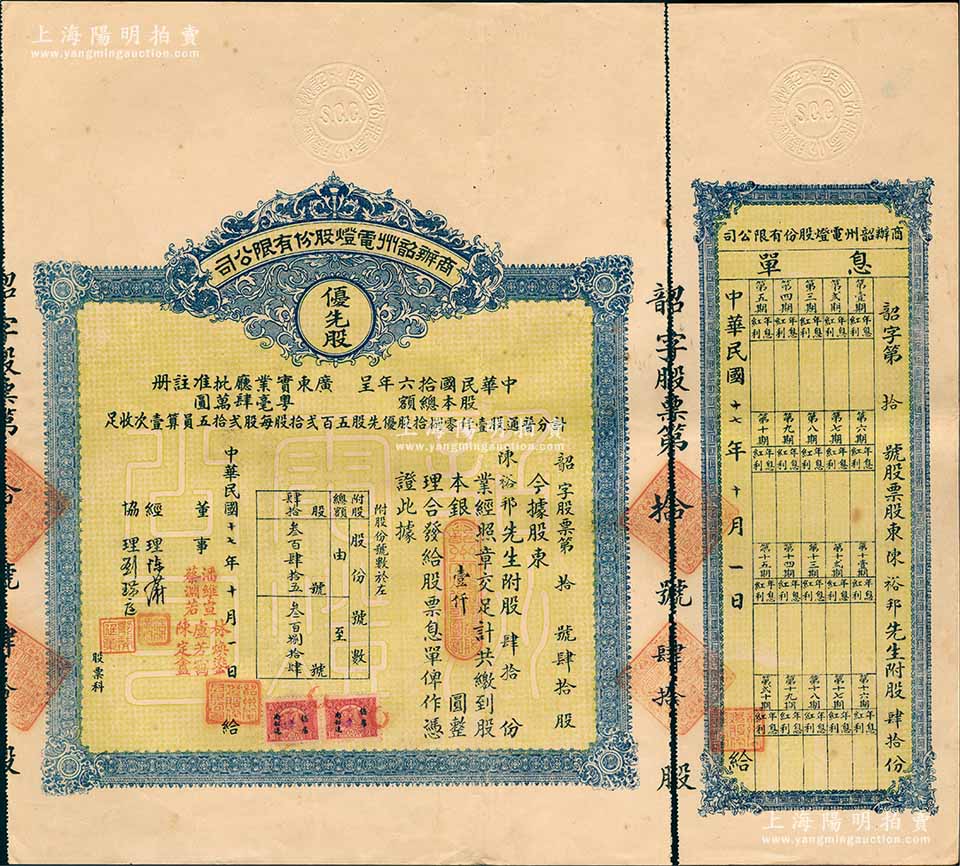 上海陽明拍賣
www.yangmingauction.com
上海陽明拍賣
www.yangmingauction.com
S.C.C.
S.C.C.
商辦韶州電燈股份有限公司
優先股
中華民國拾六年呈　廣東實業廳批准註冊
股本總額　粵毫肆萬圓
計分普通股壹仟零捌拾股優先股五百弍拾股每股弍拾五員算壹次收足
韶字股票第拾號肆拾股
今據股東
陳裕邦先生附股肆拾份
業經照章交足計共繳到股
本銀壹仟圓整
理合發給股票息單俾作憑
證此據
附股份號數於左
附股總額　股份號數
股　由　號　至　號
肆拾　叁百肆拾五　叁百捌拾肆
中華民國十七年十月一日給
董事
潘維宣
蔡淵若
盧芳
陳定
經理
協理
股票科
韶字股票第拾號肆拾股
商辦韶州電燈股份有限公司
息單
韶字第拾號股票股東陳裕邦先生附股肆拾份
第壹期　第弍期　第三期　第四期　第五期
年息紅利　年息紅利　年息紅利　年息紅利　年息紅利
第六期　第七期　第八期　第九期　第十期
年息紅利　年息紅利　年息紅利　年息紅利　年息紅利
第十壹期　第十弍期　第十三期　第十四期　第十五期
年息紅利　年息紅利　年息紅利　年息紅利　年息紅利
第十六期　第十七期　第十八期　第十九期　第弍十期
年息紅利　年息紅利　年息紅利　年息紅利　年息紅利
中華民國十七年十月一日給
上海陽明拍賣
www.yangmingauction.com
上海陽明拍賣
www.yangmingauction.com